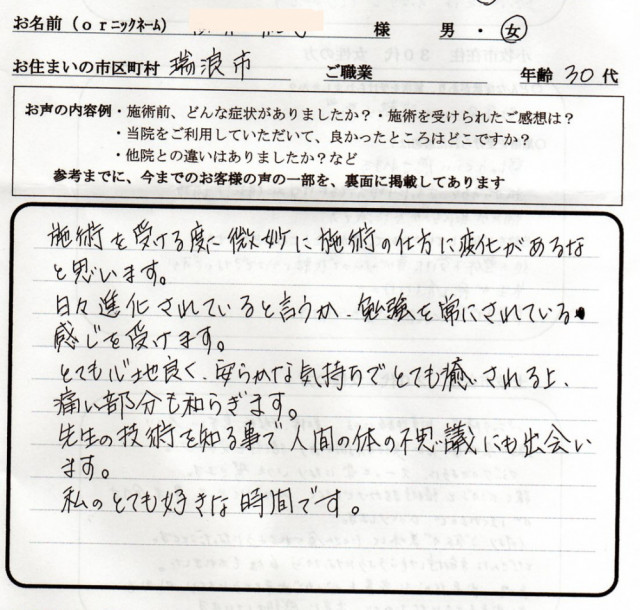 お名前(orニックネーム) 様 男・女
お住まいの市区町村 瑞浪市 ご職業 年齢 30代
お声の内容例・施術前、どんな症状がありましたか?・施術を受けられたご感想は?
・当院をご利用していただいて、良かったところはどこですか?
・他院との違いはありましたか?など
参考までに、今までのお客様の声の一部を、裏面に掲載してあります
施術を受ける度に微妙に施術の仕方に変化があるな
と思います。
日々進化されていると言うか、勉強を常にされている
感じを受けます。
とても心地良く、安らかな気持ちでとても癒される上、
痛い部分も和らぎます。
先生の技術を知る事で人間の体の不思議にも出会い
ます。
私のとても好きな時間です。